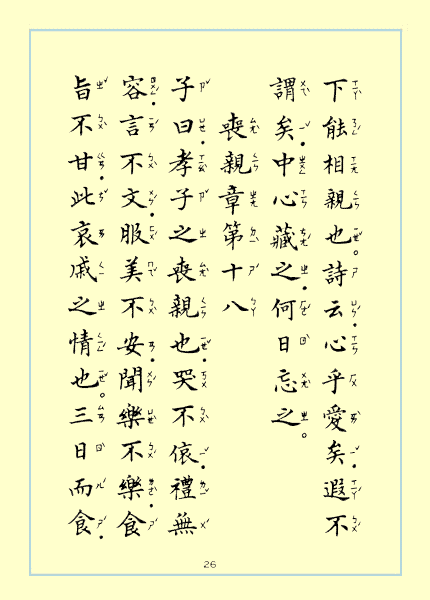 下能相親也。詩云．心乎愛矣．遐不
謂矣．中心藏之．何日忘之。
喪親章第十八
子曰．孝子之喪親也．哭不偯．禮無
容．言不文．服美不安．聞樂不樂．食
旨不甘．此哀戚之情也。三日而食．
26